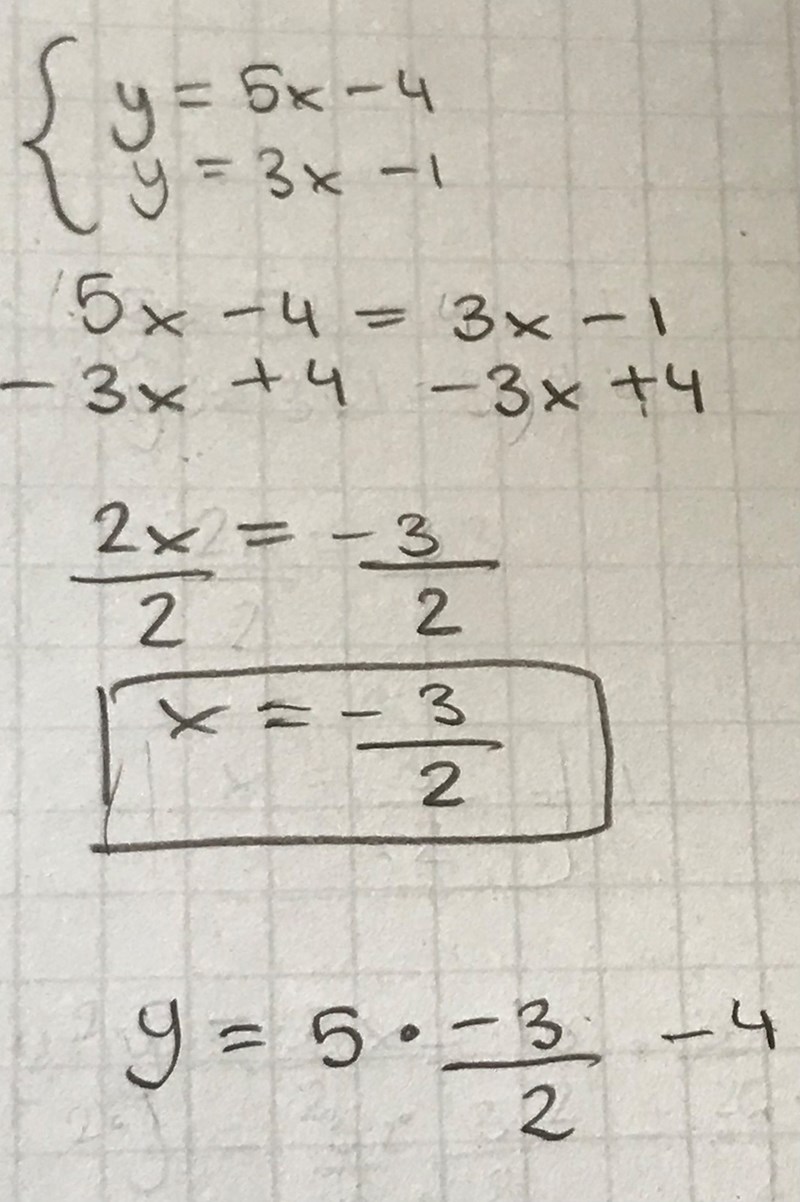 { y = 5x - 4
y = 3x - 1
5x - 4 = 3x - 1
- 3x + 4 - 3x + 4
2x/2 = - 3/2
x = - 3/2
y = 5 · -3/2 - 4